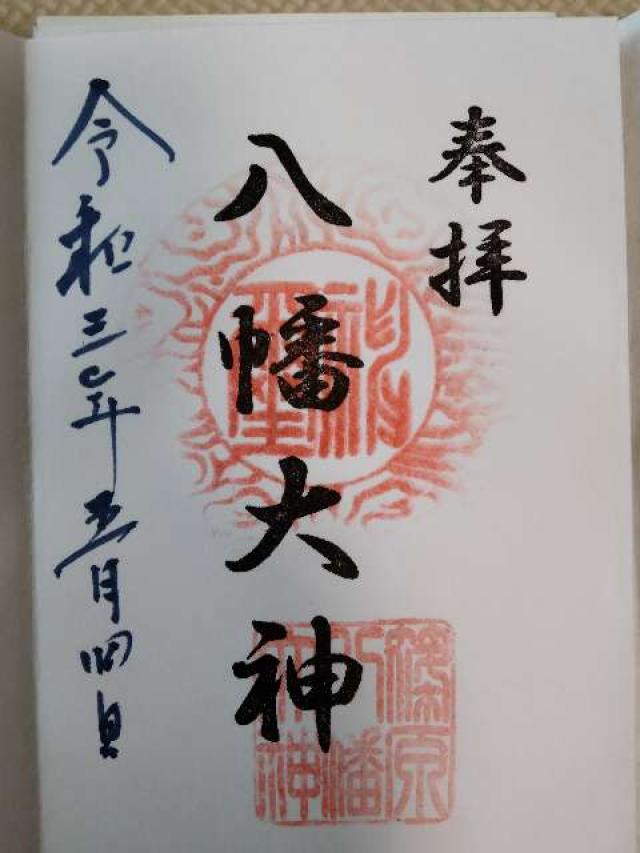 奉拝
八幡大神
令和三年五月四日
篠原
八幡
神